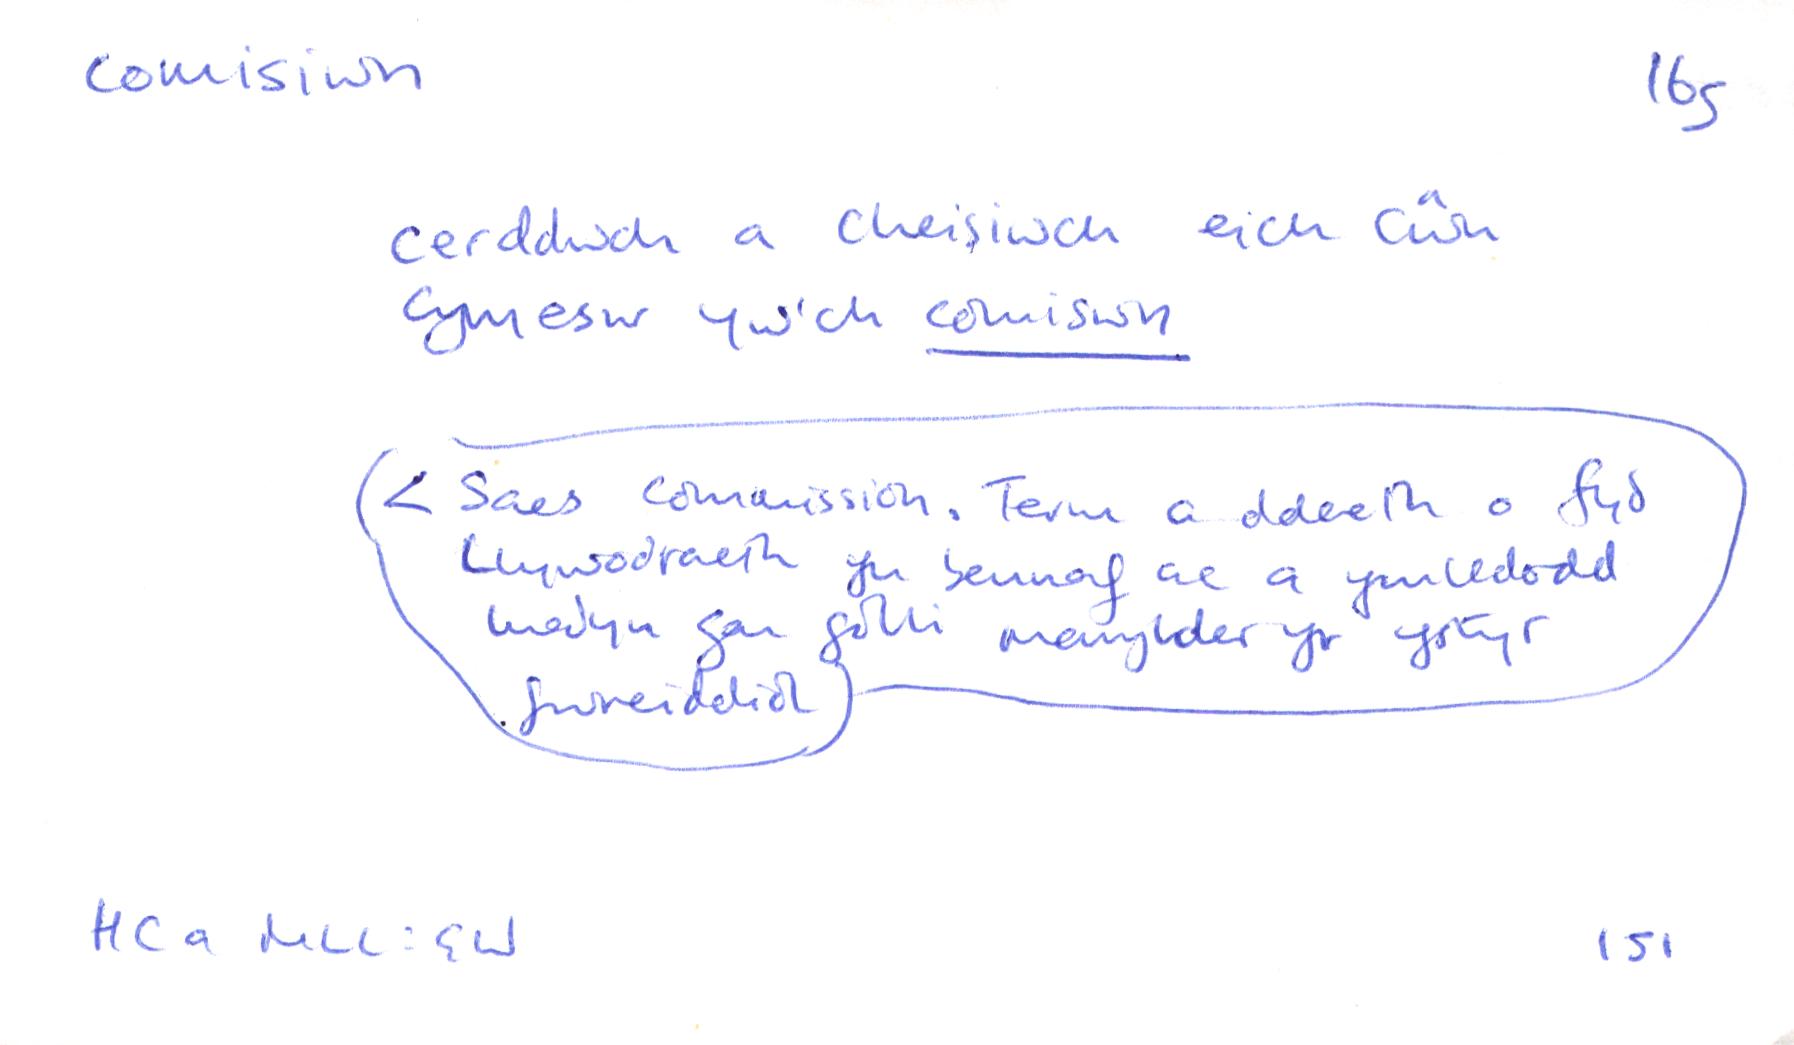 comisiwn 16g
cerddwch a cheisiwch eich cŵn
Cymesur yw'ch comiswn
(< Saes commission. Term a ddaeth o fyd
Llywodraeth yn bennaf ac a ymledodd
wedyn gan golli manylder yr ystyr
gwreiddiol)
HCa MLL: GW 151